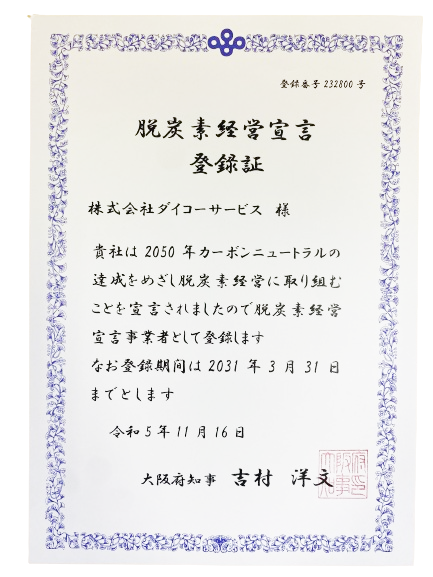 登録番号 232800 号
脱炭素経営宣言
登録証
株式会社ダイコーサービス 様
貴社は 2050 年カーボンニュートラルの
達成をめざし脱炭素経営に取り組む
ことを宣言されましたので脱炭素経営
宣言事業者として登録します
なお登録期間は 2031 年 3 月 31 日
までとします
令和 5 年 11 月 16 日
大阪府知事 吉村 洋文